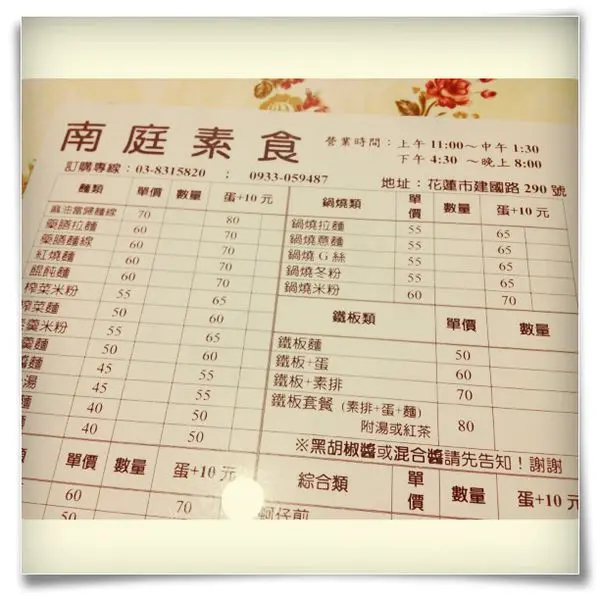 南庭素食
營業時間：上午 11:00～中午 1:30
下午 4:30 ～晚上 8:00
訂購專線：03-8315820 ； 0933-059487
地址：花蓮市建國路 290 號
麵類 單價 數量 蛋+10 元
麻油當歸麵線 70 80
藥膳拉麵 60 70
藥膳麵線 60 70
紅燒麵 60 70
餛飩麵 60 70
榨菜米粉 55 65
榨菜麵 50 60
羹米粉 55 65
羹麵 50 60
醬麵 45 55
湯 45 55
麵 40 50
40 50
鍋燒類 單價 蛋+10 元
鍋燒拉麵 55 65
鍋燒意麵 55 65
鍋燒 G 絲 55 65
鍋燒冬粉 55 65
鍋燒米粉 60 70
鐵板類 單價 數量
鐵板麵 50
鐵板+蛋 60
鐵板+素排 70
鐵板套餐 (素排+蛋+麵) 80
附湯或紅茶
※黑胡椒醬或混合醬請先告知！謝謝
類 單價 數量 蛋+10 元
60 70
50 60
綜合類 單價 數量 蛋+10 元
蚵仔煎